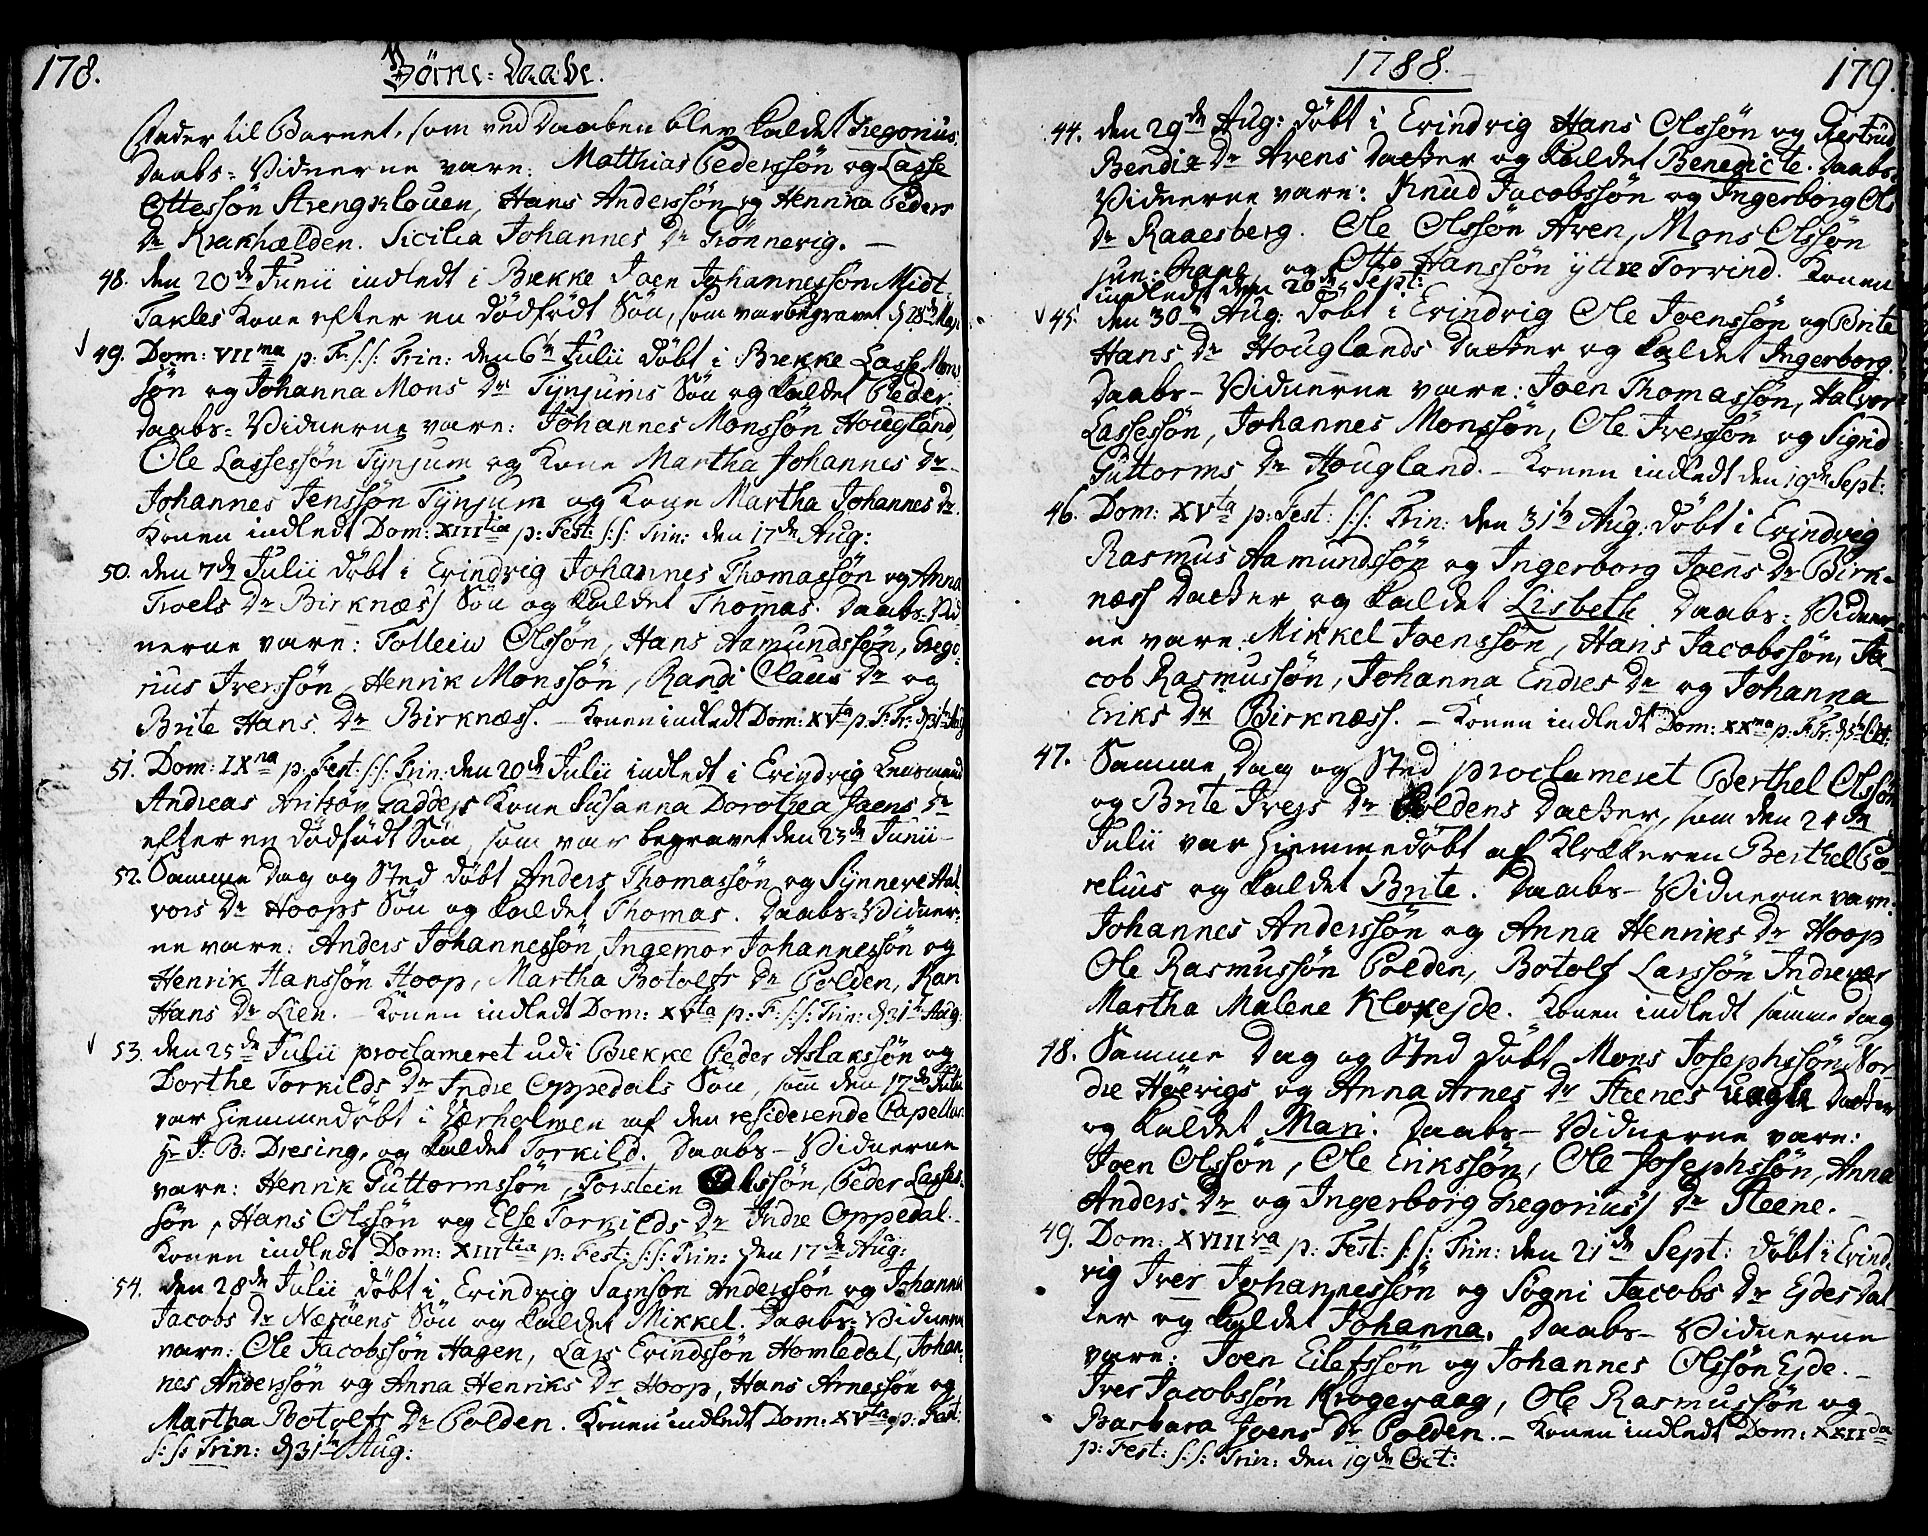 178.
Börne-Daabe.
Fader til Barnet, som ved Daaben blev kaldet Gregorius.
Daabs-Vidnerne vare: Matthias Pederssön og Lasse
Ottessön Strengklouen, Hans Anderssön og Henrika Peders
Dr Krakhælden. Sicilia Johannes Dr Grönnevig. —
48. den 20de Junii indledt i Brekke Joen Johannessön Midt-
Takles Kone efter en dödfödt Sön, som var begravet d 28de Maj:
49. Dom: VIIma p: F: s:s: Trin: den 6te Julii döbt i Brekke Lasse Mons
sön og Johanna Mons Dr Tÿnjums Sön og kaldet Peder.
Daabs-Vidnerne vare: Johannes Monssön Hougland,
Ole Lassessön Tÿnjum og Kone Martha Johannes Dr
Johannes Jenssön Tÿnjum og Kone Martha Johannes Dr.
Konen indledt Dom: XIIItia p: Fest: s:s: Trin: den 17de Aug:
50. den 7de Julii döbt i Evindvig Johannes Thomassön og Anna
Troels Dr Birknæss Sön og kaldet Thomas. Daabs-Vid
nerne vare: Folleiv Olssön, Hans Aamundssön, Grego-
rius Iverssön, Henrik Monssön, Randi Claus Dr og
Brite Hans Dr Birknæss. — Konen indledt Dom: XVta p: F: Tr: d 31te Aug
51. Dom: IXna p: Fest: s:s: Trin: den 20de Julii indledt i Evindvig Lensmand
Andreas Gaddess Kone Susanna Dorothea Jaens Dr
efter en dödfödt Sön, som var begravet den 23de Junii —
52. Samme Dag og Sted döbt Anders Thomassön og Sÿnneve Hal
vors Dr Hoops Sön og kaldet Thomas. Daabs-Vidner-
ne vare: Anders Johannessön, Ingemor Johannessön og
Henrik Hanssön Hoop, Martha Botolfs Dr Polden, Kari
Hans Dr Lien. — Konen indledt Dom: XVta p: F: s:s: Trin: d 31te Aug:
53. den 25de Julii proclameret udi Brekke Peder Aslakssön og
Dorthe Torkilds Dr Indre Oppedals Sön, som den 17de Julii
var hiemmedöbt i Verholmen af den residerende Capellan
Hr J: B: Dresing, og kaldet Torkild. Daabs-Vidnerne
vare: Henrik Guttormssön, Torstein Olssön, Peder Lasses-
sön, Hans Olssön og Else Torkilds Dr Indre Oppedal.
Konen indledt Dom: XIIItia p: Fest: s:s: Trin: den 17de Aug:
54. den 28de Julii döbt i Evindvig Samson Anderssön og Johanna
Jacobs Dr Nesöens Sön og kaldet Mikkel. Daabs-Vidnerne
vare: Ole Jacobssön Hagen, Lars Erindssön Homledal, Johan-
nes Anderssön og Anna Henriks Dr Hoop, Hans Arnessön og
Martha Botolfs Dr Polden. Konen indledt Dom: XVta p: Fest:
s:s: Trin: d 31te Aug:
1788.
179.
44. den 29de Aug: döbt i Evindvig Hans Olssön og Giertrud
Bendix Dr Avens Datter og kaldet Benedicte. Daabs-
Vidnerne vare: Knud Jacobssön og Ingerborg Ols
Dr Raaesberg. Ole Olssön Aven, Mons Olssön
jun: og Otto Hanssön ÿttre Torvind. Konen
indledt den 20de Sept:
45. den 30te Aug: döbt i Evindvig Ole Joenssön og Brite
Hans Dr Houglands Datter og kaldet Ingerborg.
Daabs-Vidnerne vare: Joen Thomassön, Halvor
Lassessön, Johannes Monssön, Ole Iverssön og Sigrid
Guttorms Dr Hougland. — Konen indledt den 19de Sept:
46. Dom: XVta p: Fest: s:s: Trin: den 31te Aug: döbt i Evindvig
Rasmus Aamundssön og Ingerborg Joens Dr Birk-
næss Datter og kaldet Lisbeth. Daabs-Vidner-
ne vare: Mikkel Joenssön, Hans Jacobssön, Ja-
cob Rasmussön, Johanna Endres Dr og Johanna
Eriks Dr Birknæss. — Konen indledt Dom: XXma p: F: Tr: d 5te Oct:
47. Samme Dag og Sted proclameret Berthel Olssön
og Brite Ivers Dr Poldens Datter, som den 24de
Julii var hiemmedöbt af Klokkeren Berthel Co
relius og kaldet Brite. Daabs-Vidnerne vare:
Johannes Anderssön og Anna Henriks Dr Hoop
Ole Rasmussön Polden, Botolf Larssön Indrevær
Martha Malene Klovejde. Konen indledt samme Dag
48. Samme Dag og Sted döbt Mons Josephssön Nor-
dre Höevigs og Anna Arnes Dr Steenes uægte Datter
og kaldet Mari. Daabs-Vidnerne vare:
Joen Olssön, Ole Erikssön, Ole Josephssön, Anna
Anders Dr og Ingerborg Gregorius Dr Steene. —
49. Dom: XVIIIva p: Fest: s:s: Trin: den 21de Sept: döbt i Evind-
vig Iver Johannessön og Sögni Jacobs Dr Ejdes Dat-
ter og kaldet Johanna. Daabs-Vidnerne
vare: Joen Eilefssön og Johannes Olssön Ejde. —
Iver Jacobssön Krogevaag, Ole Rasmussön og
Barbara Joens Dr Polden. — Konen indledt Dom: XXIIda
p: Fest: s:s: Trin: den 19de Oct: